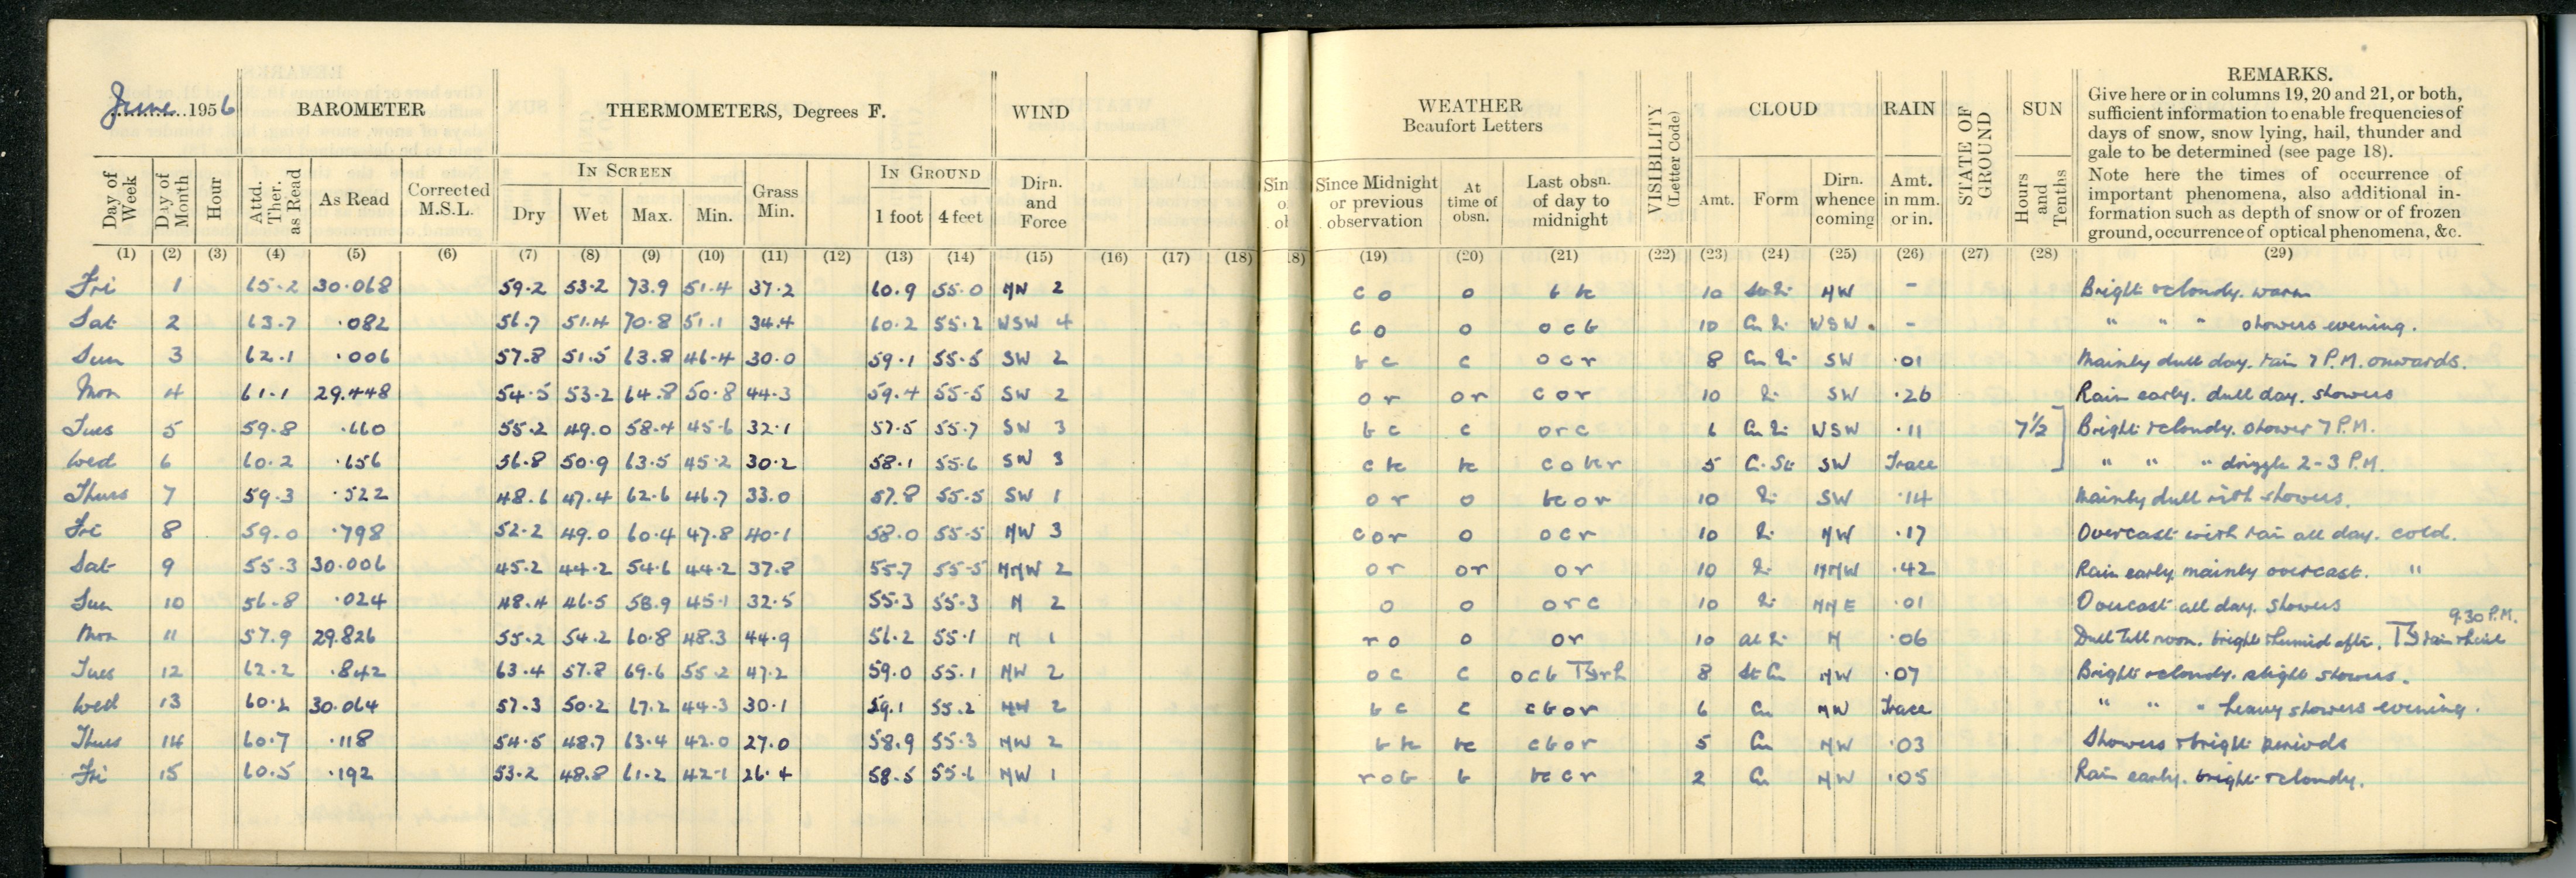 June 1956 BAROMETER THERMOMETERS, Degrees F. WIND WEATHER Beaufort Letters VISIBILITY (Letter Code) CLOUD RAIN STATE OF GROUND SUN REMARKS.
Give here or in columns 19, 20 and 21, or both,
sufficient information to enable frequencies of
days of snow, snow lying, hail, thunder and
gale to be determined (see page 18).
Note here the times of occurrence of
important phenomena, also additional in-
formation such as depth of snow or of frozen
ground, occurrence of optical phenomena, &c.
Day of Week Day of Month Hour Attd. Ther. as Read As Read Corrected M.S.L. IN SCREEN Dry Wet Max. Min. Grass Min. IN GROUND 1 foot 4 feet Dirn. and Force Since Midnight or previous observation At time of obsn. Last obsn. of day to midnight Amt. Form Dirn. whence coming Amt. in mm. or in. Hours and Tenths
(1) (2) (3) (4) (5) (6) (7) (8) (9) (10) (11) (12) (13) (14) (15) (16) (17) (18) (19) (20) (21) (22) (23) (24) (25) (26) (27) (28) (29)
Fri 1 65.2 30.068 59.2 53.2 73.9 51.4 37.2 60.9 55.0 NW 2 c o o b bc 10 NW - Bright & cloudy. warm
Sat 2 63.7 .082 56.7 51.4 70.8 51.1 34.4 60.2 55.2 WSW 4 c o o o c b 10 WSW - " " " showers evening.
Sun 3 62.1 .006 57.8 51.5 63.8 46.4 30.0 59.1 55.5 SW 2 b c c o c r 8 SW .01 Mainly dull day. rain 7 P.M. onwards.
Mon 4 61.1 29.448 54.5 53.2 64.8 50.8 44.3 59.4 55.5 SW 2 o r o r c o r 10 SW .26 Rain early. dull day. showers
Tues 5 59.8 .660 55.2 49.0 58.4 45.6 32.1 57.5 55.7 SW 3 b c c o r c 6 WSW .11 7½ Bright & cloudy. shower 7 P.M.
Wed 6 60.2 .656 56.8 50.9 63.5 45.2 30.2 58.1 55.6 SW 3 c bc bc c o bc r 5 SW Trace " " " drizzle 2-3 P.M.
Thurs 7 59.3 .522 48.6 47.4 62.6 46.7 33.0 57.8 55.5 SW 1 o r o bc o r 10 SW .14 Mainly dull with showers.
Fri 8 59.0 .798 52.2 49.0 60.4 47.8 40.1 58.0 55.5 NW 3 c o r o o c r 10 NW .17 Overcast with rain all day. cold.
Sat 9 55.3 30.006 45.2 44.2 54.6 44.2 37.8 55.7 55.5 NNW 2 o r o r o r 10 NNW .42 Rain early mainly overcast. "
Sun 10 56.8 .024 48.4 46.5 58.9 45.1 32.5 55.3 55.3 N 2 o o o r c 10 NNE .01 Overcast all day. showers
Mon 11 57.9 29.826 55.2 54.2 60.8 48.3 44.9 56.2 55.1 N 1 r o o o r 10 N .06 Dull till noon. bright & humid after. rain & hail 9.30 P.M.
Tues 12 62.2 .842 63.4 57.8 69.6 55.2 47.2 59.0 55.1 NW 2 o c c o c b 8 St Cu NW .07 Bright & cloudy. slight showers.
Wed 13 60.2 30.064 57.3 50.2 67.2 44.3 30.1 59.1 55.2 NW 2 b c c c b o r 6 Cu NW Trace " " " heavy showers evening.
Thurs 14 60.7 .118 54.5 48.7 63.4 42.0 27.0 58.9 55.3 NW 2 b bc bc c b o r 5 Cu NW .03 Showers & bright periods
Fri 15 60.5 .192 53.2 48.8 61.2 42.1 26.4 58.5 55.6 NW 1 r o b b bc c r 2 NW .05 Rain early. bright & cloudy.